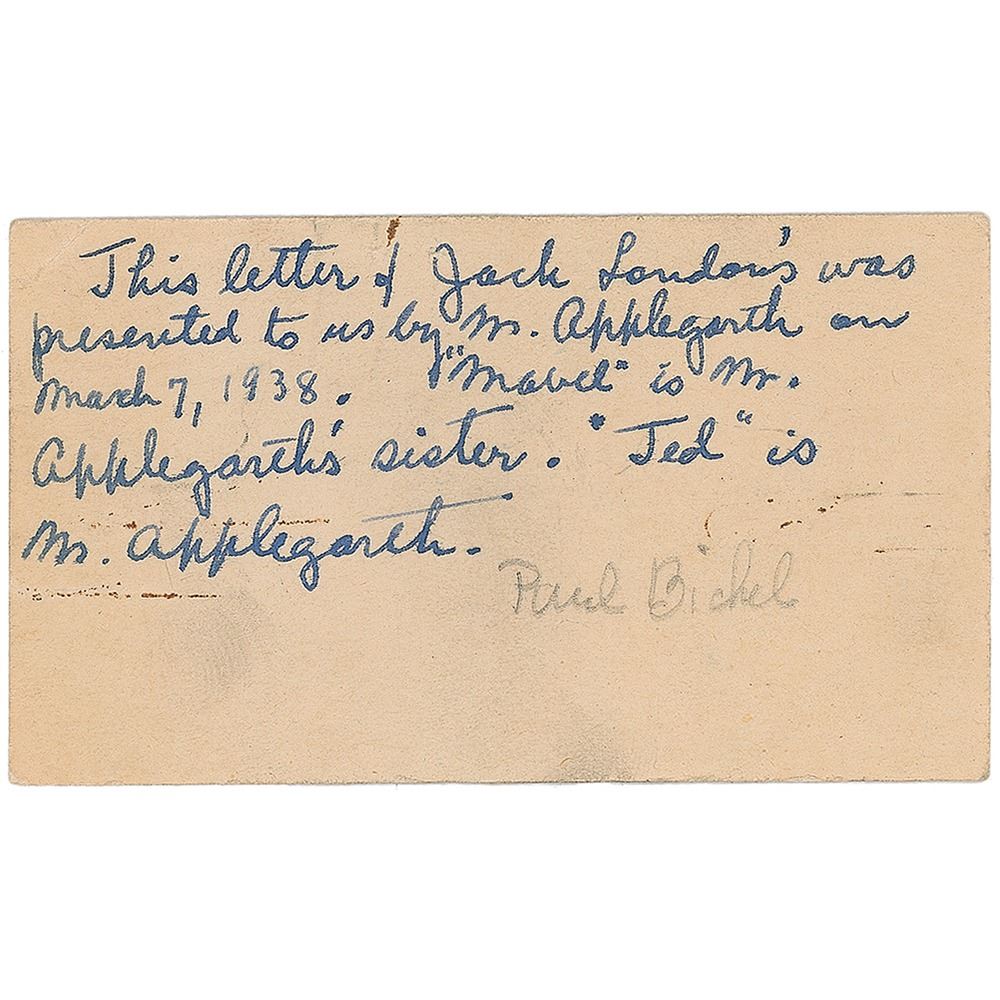 This letter of Jack London's was
presented to us by Mr. Applegarth on
March 7, 1938. "Mabel" is Mr.
Applegarth's sister. "Ted" is
Mr. Applegarth.
Paul Bichel